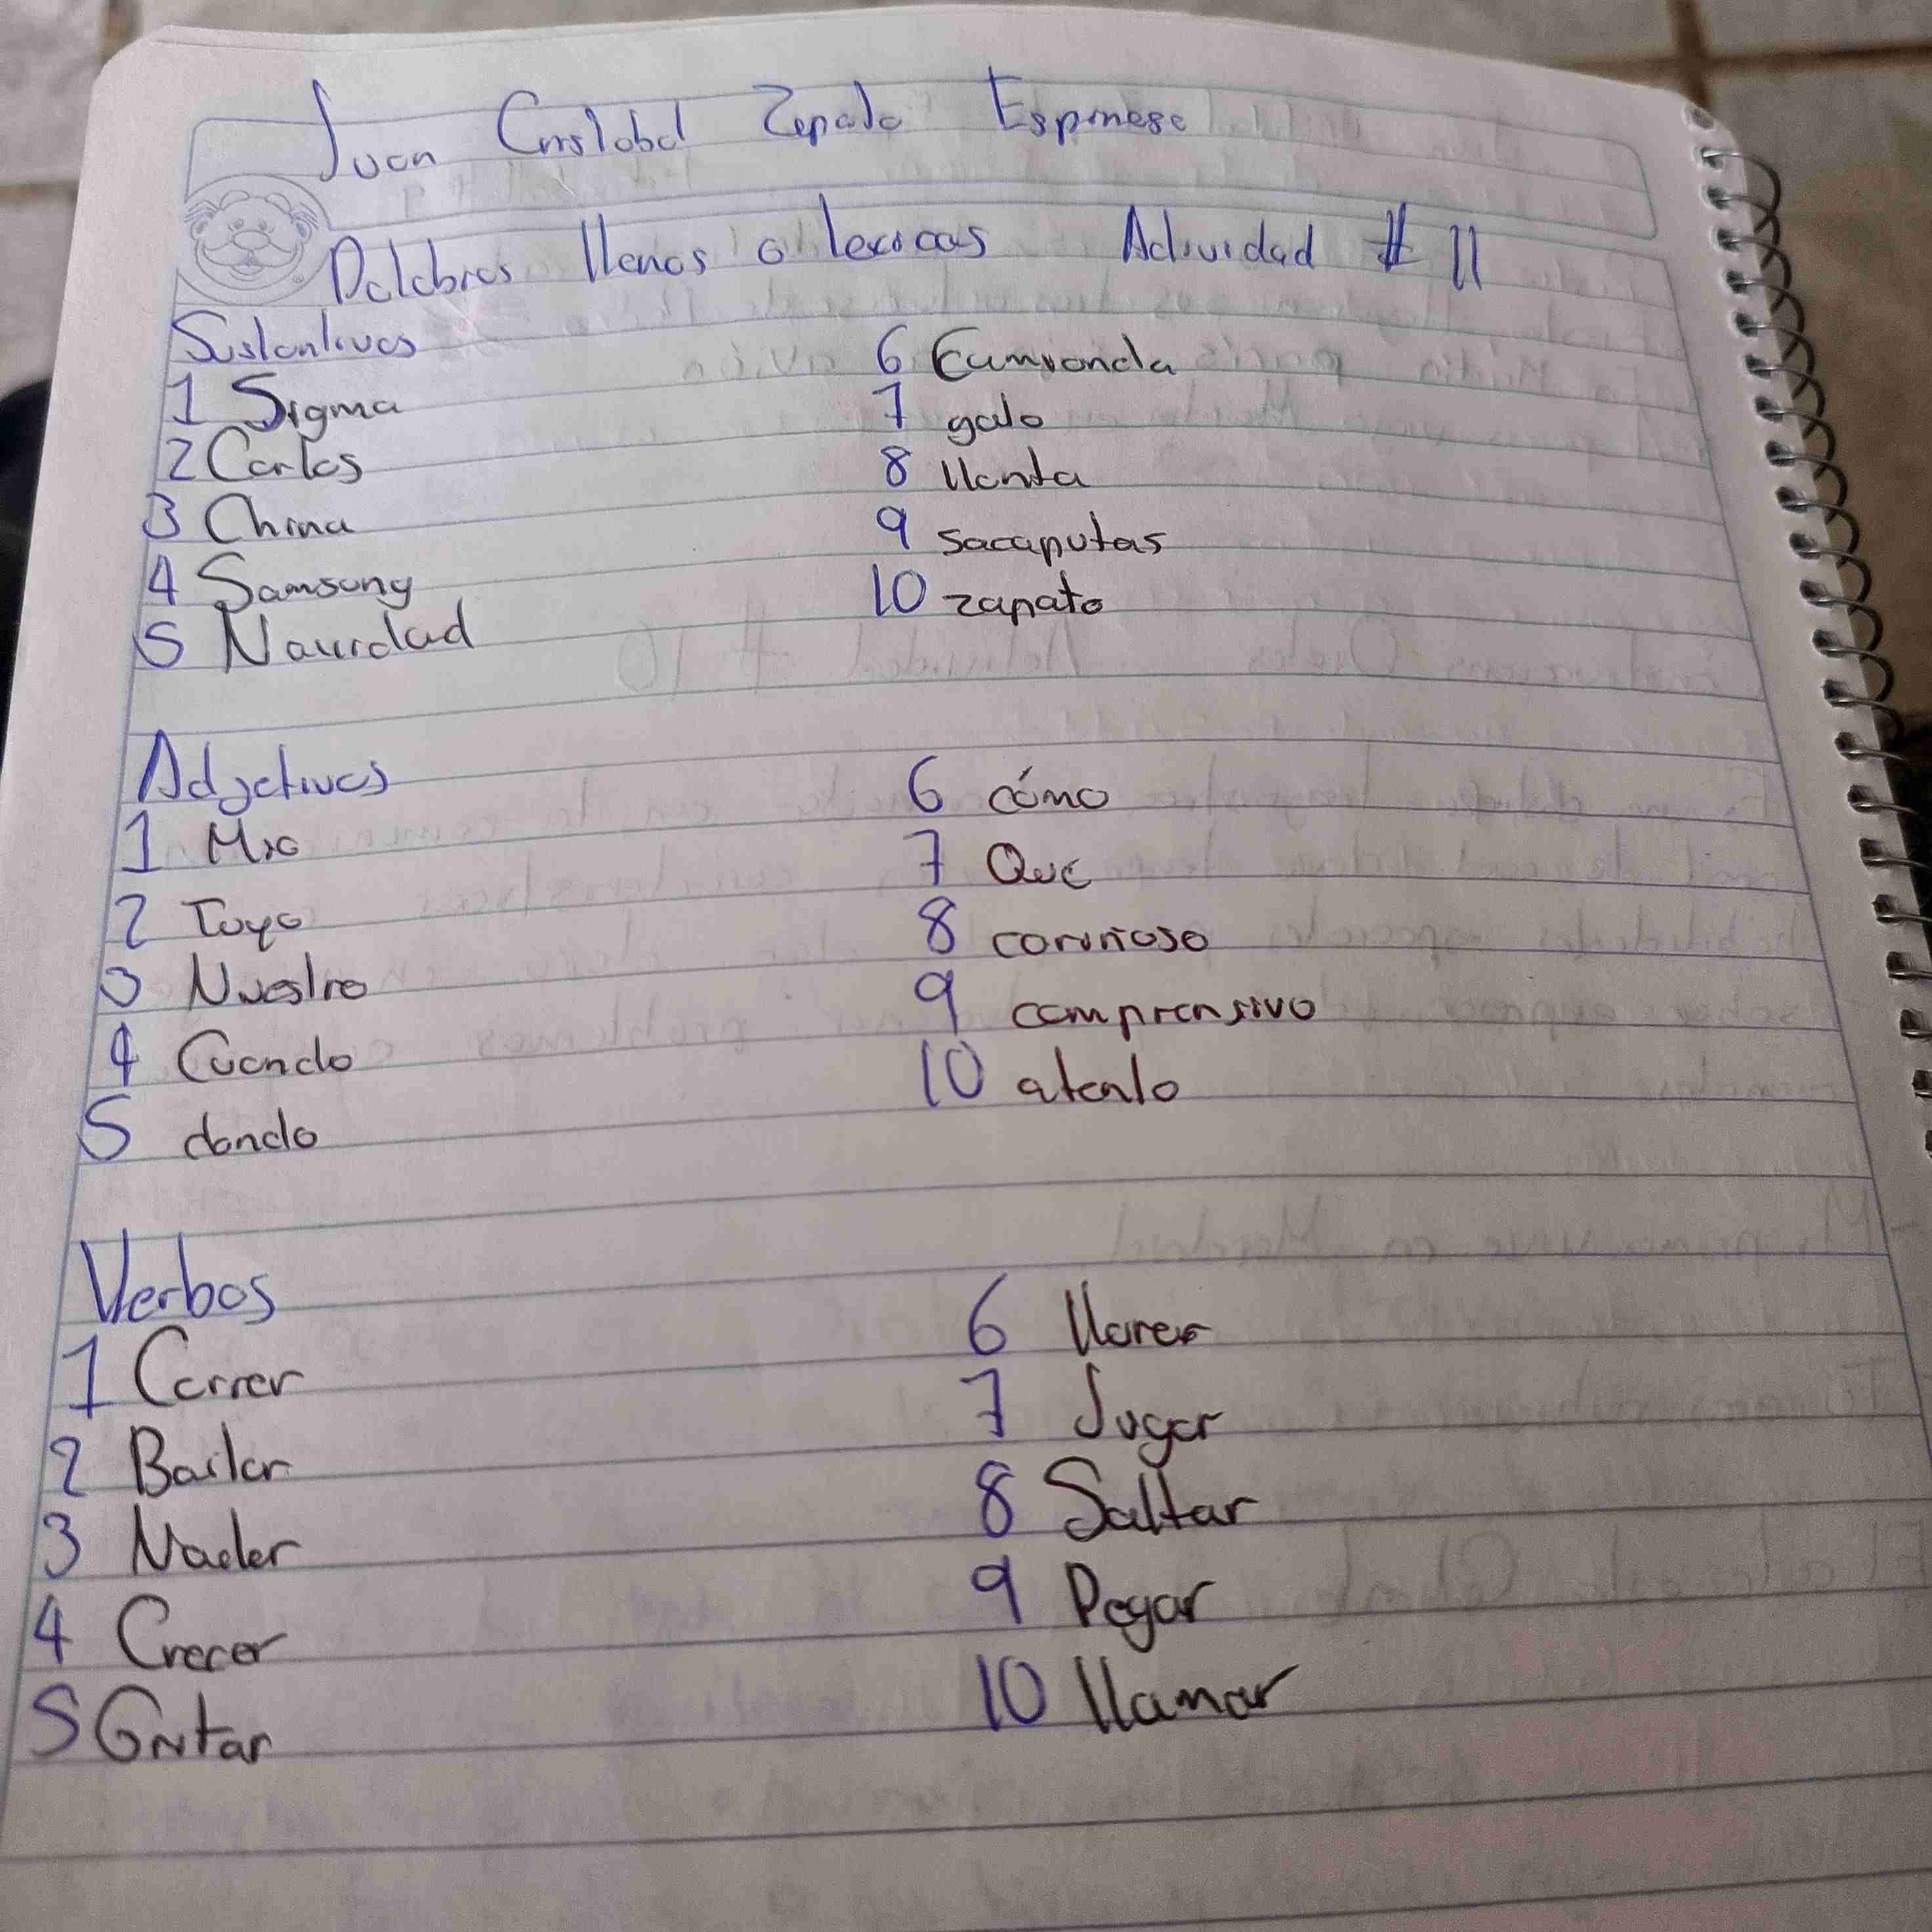 Juan Cristobal Zapata Espinosa
Palabras llenas o lexicas Actividad # 11
Sustantivos
1 Sigma
2 Carlos
3 China
4 Samsung
5 Navidad
6 Camioneta
7 gato
8 llanta
9 sacaputas
10 zapato
Adjetivos
1 Mio
2 Tuyo
3 Nuestro
4 Cuando
5 donde
6 cómo
7 Que
8 cariñoso
9 comprensivo
10 atento
Verbos
1 Correr
2 Bailar
3 Nadar
4 Crecer
5 Gritar
6 llorar
7 Jugar
8 Saltar
9 Pegar
10 llamar